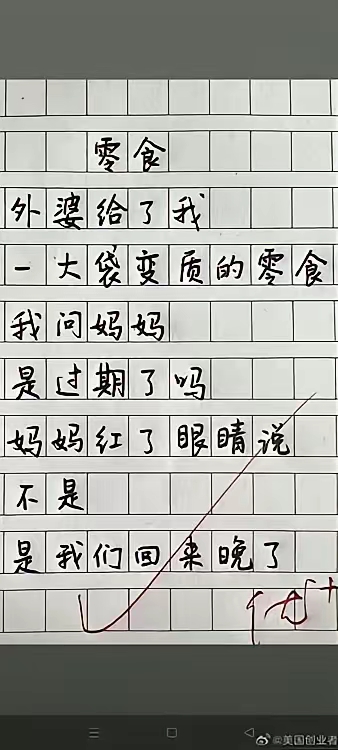 零食
外婆给了我
一大袋变质的零食
我问妈妈
是过期了吗
妈妈红了眼睛说
不是
是我们回来晚了
优+
@美国创业者